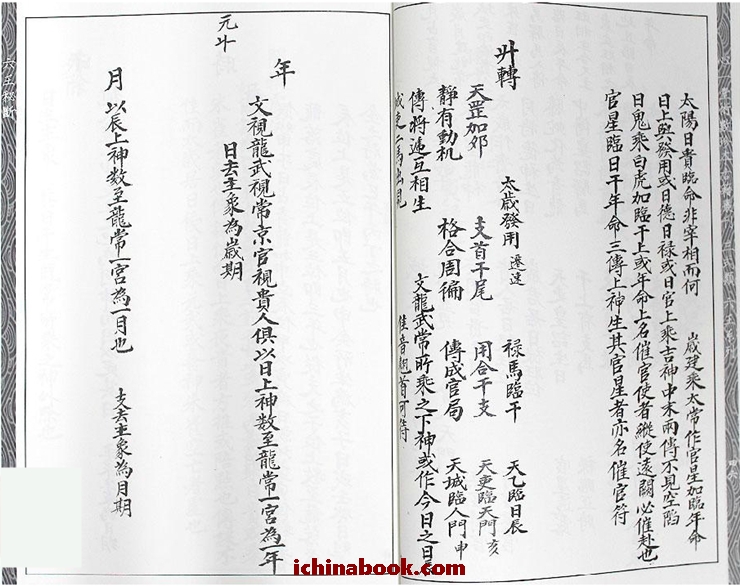 太陽日貴臨命非宰相而何
歲建乘太常作官星加臨年命
日上與發用或日德日祿或日官上乘吉神中末兩傳不見空陷
日鬼乘白虎加臨干上或年命上名催官使者縱使遠闕必催赴也
官星臨日干年命三傳上神生其官星者亦名催官符
升轉
太歲發用 遷達
祿馬臨干
天乙臨日辰
天罡加卯
支首干尾
用合干支
天吏臨天門亥
靜有動机
格合周徧
傳成官局
天城臨人門申
傳將遞互相生
文龍武常所乘之下神或作今日之日
二馬出見
佳音翹首可符
年
文視龍武視常京官視貴人俱以日上神数至龍常一宮為一年
日去主象為歲期
元斗
月
以辰上神数至龍常一宮為一月也
支去主象為月期
六壬
斷
ichinabook.com